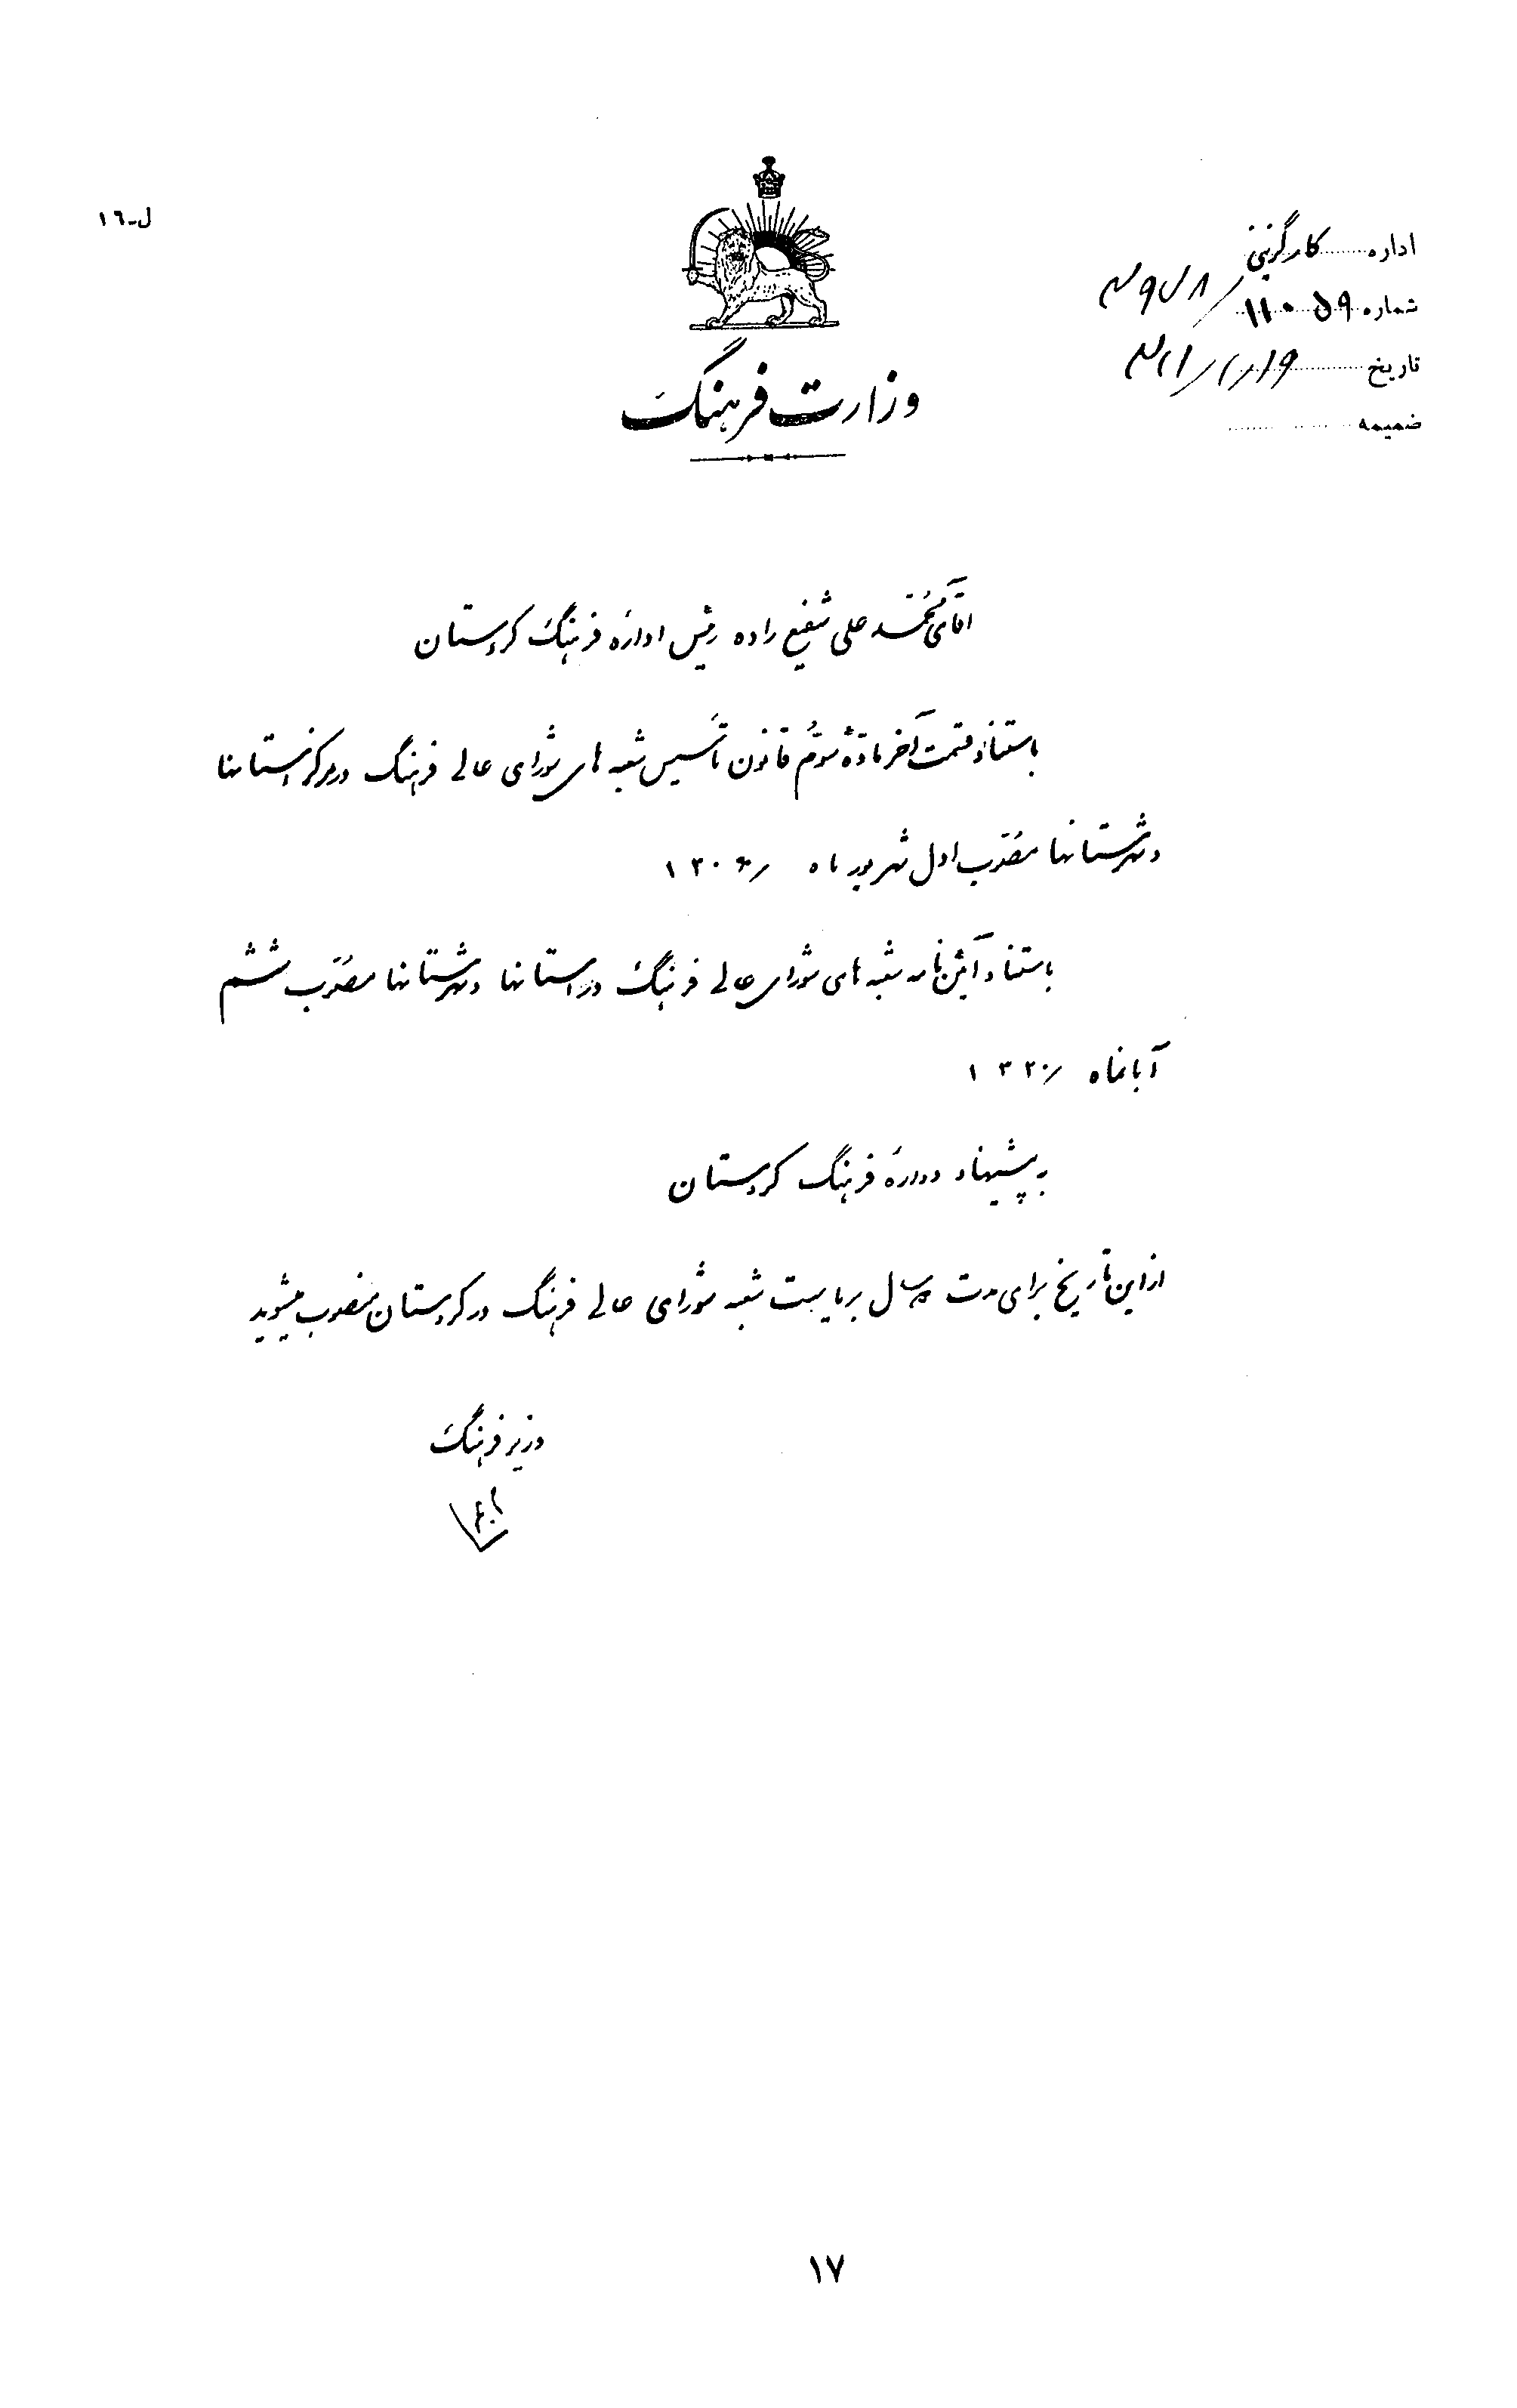 ل-١٦
اداره کارگزینی
شماره ۱۱۰۵۹
تاریخ
ضمیمه
وزارت فرهنگ
آقای محمد علی شفیع زاده رئیس ادارهٔ فرهنگ کردستان
باستناد قسمت آخر مادهٔ سوم قانون تأسیس شعبه های شورای عالی فرهنگ در مرکز استانها
و شهرستانها مصوب اول شهریور ماه ۱۳۰۶
باستناد آئین نامه شعبه های شورای عالی فرهنگ در استانها و شهرستانها مصوب ششم
آبانماه ۱۳۲۰
به پیشنهاد ادارهٔ فرهنگ کردستان
از این تاریخ برای مدت سال بریاست شعبه شورای عالی فرهنگ در کردستان منصوب میشوید
وزیر فرهنگ
۱۷